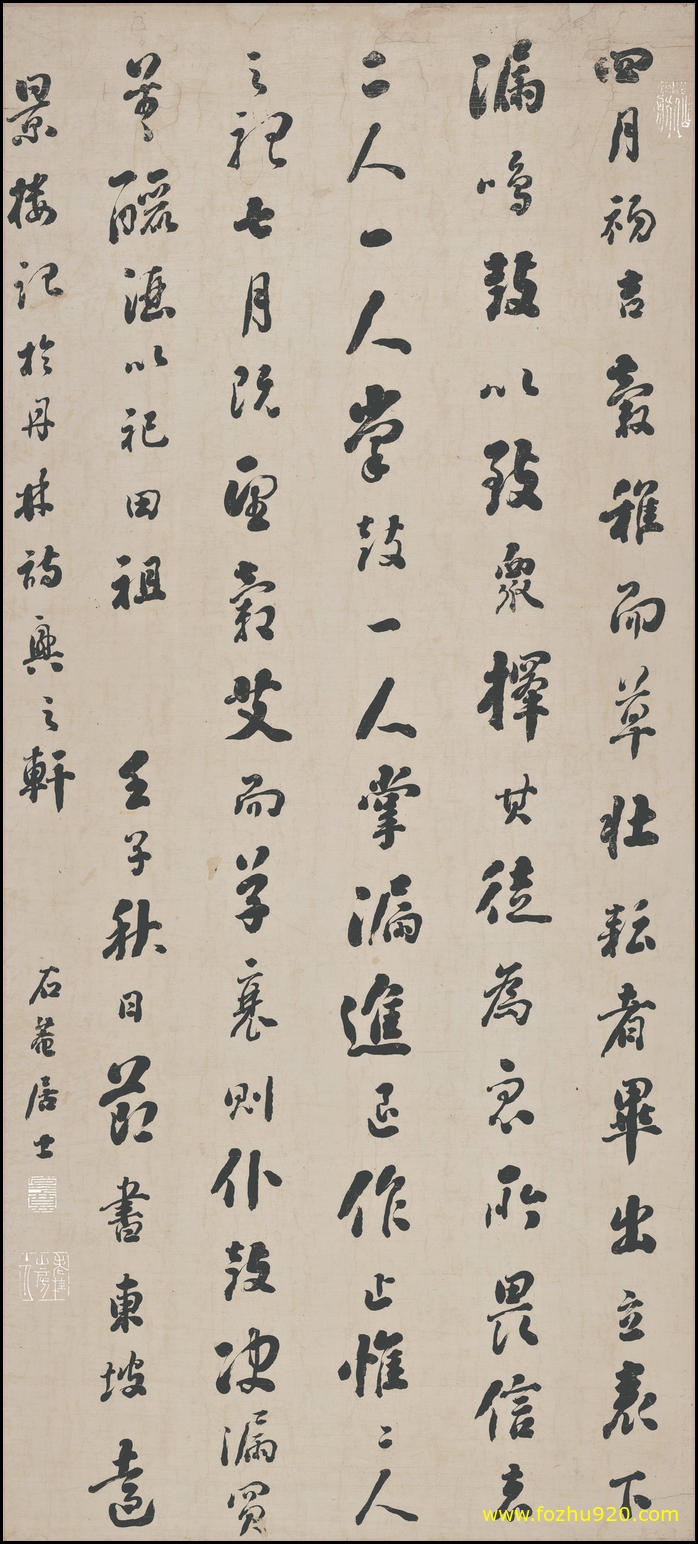 四月初吉穀稚而草壯耘者畢出立表下
漏鳴鼓以致眾擇其徒為眾所畏信者
二人一人掌鼓一人掌漏進退作止惟二人
之聽七月既望穀艾而草衰則仆鼓決漏買
釃酒以祀田祖 壬子秋日節書東坡遠
景樓記於丹林詩興之軒 石菴居士
www.fozhu920.com